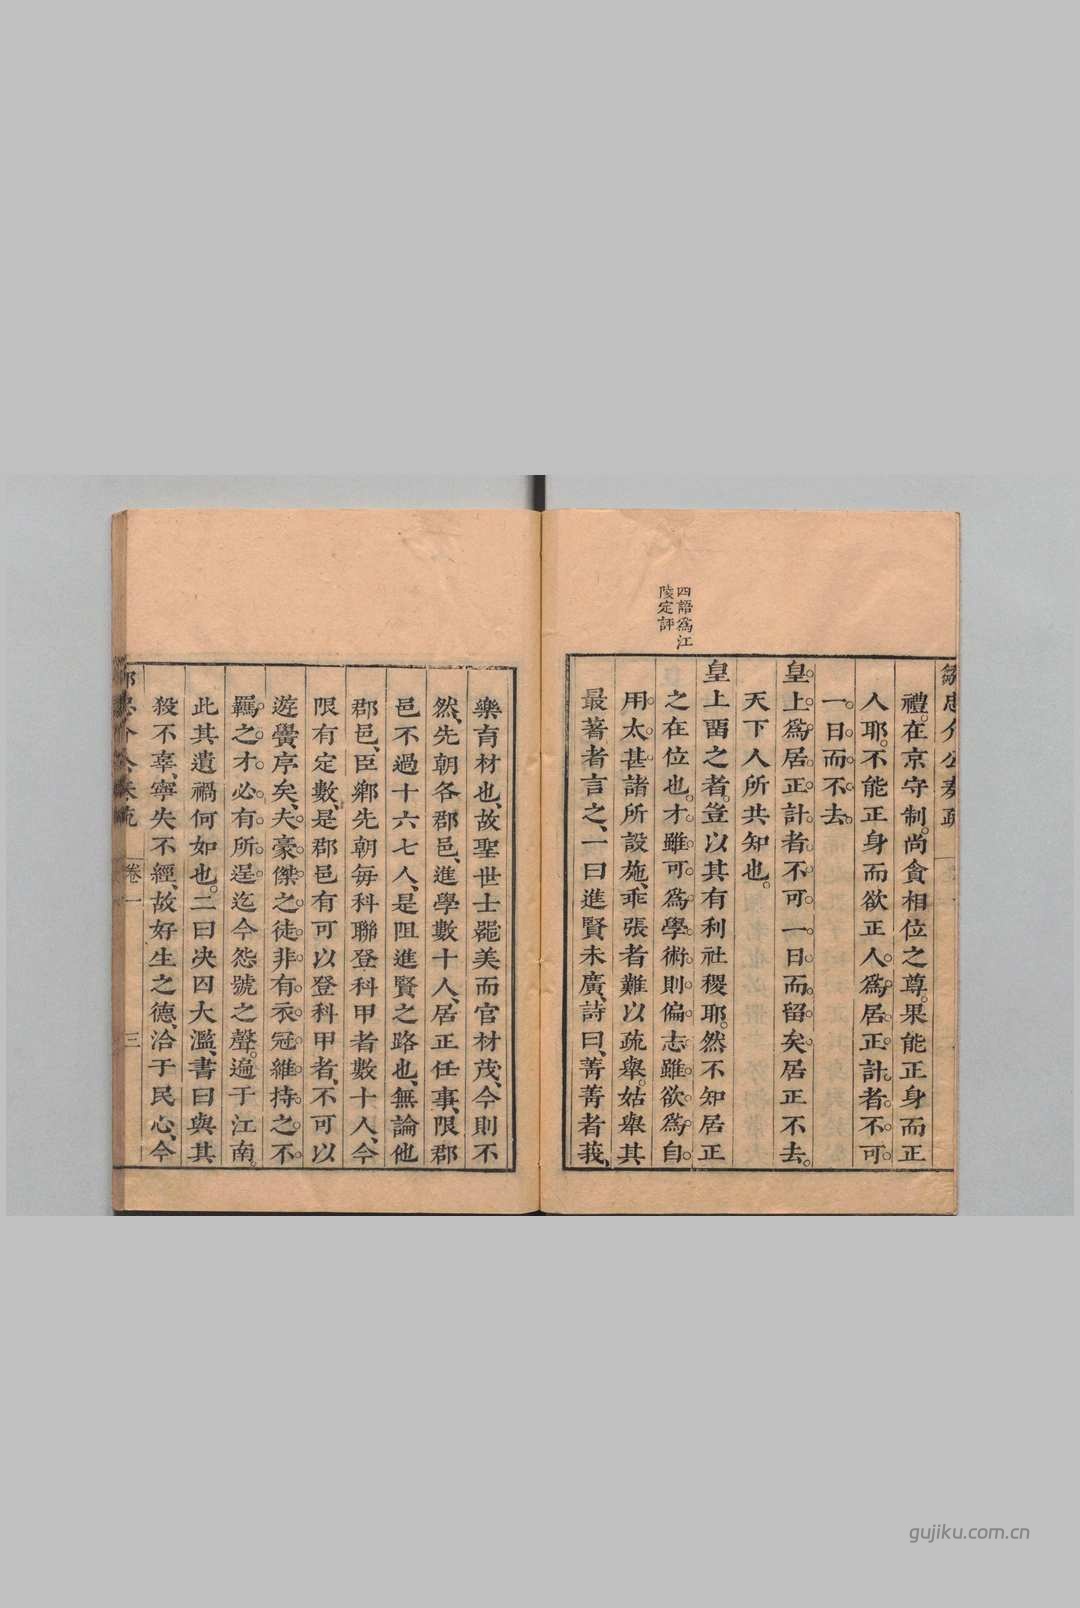 鄒忠介公奏疏
禮。在京守制。尚貪相位之尊。果能正身而正
人耶。不能正身而欲正人。爲居正計者。不可
一日而不去、
皇上爲居正計者不可一日而留矣居正不去
天下人所共知也。
皇上留之者。豈以其有利社稷耶。然不知居正
之在位也。才雖可爲學術則偏志雖欲爲自
用太甚諸所設施、乖張者難以疏舉。姑舉其
最著者言之、一曰進賢未廣、詩曰、菁菁者莪、
四語爲江
陵定評
樂育材也、故聖世士器美而官材茂、今則不
然、先朝各郡邑、進學數十人、居正任事、限郡
邑不過十六七人、是阻進賢之路也、無論他
郡邑、臣鄉先朝每科聯登科甲者數十人、今
限有定數、是郡邑有可以登科甲者、不可以
遊黌序矣、夫豪傑之徒非有衣冠維持之不
羈之才必有所逞迄今怨號之聲。遍于江南。
此其遺禍何如也。二曰决囚大濫、書曰與其
殺不辜、寧失不經、故好生之德、洽于民心、今
鄒忠介公奏疏 卷一 三
gujiku.com.cn